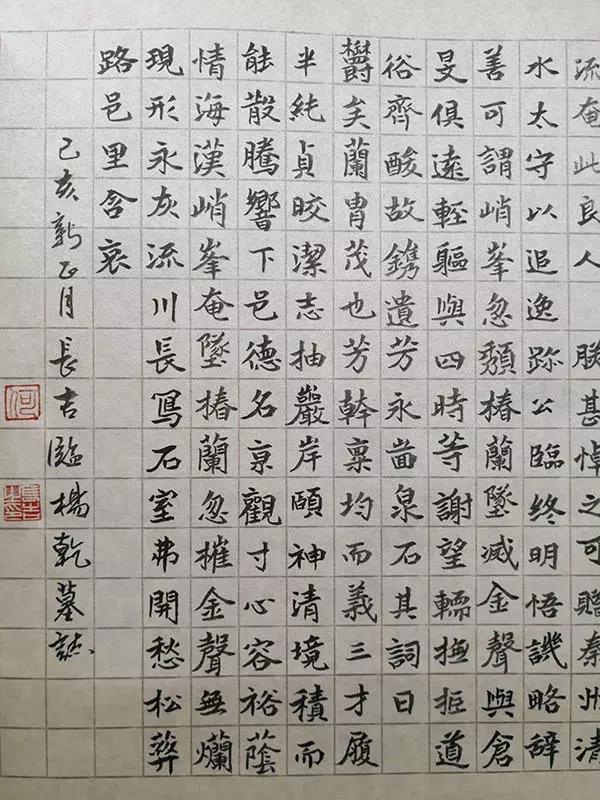 流奄此良人 朕甚悼之可贈秦州清
水太守以追逸跡公臨終明悟譏略辞
善可謂峭峯忽頹椿蘭墜滅金聲與倉
旻俱遠輊軀與四時等謝望轜撫柩道
俗齊酸故鐫遺芳永畄泉石其詞曰
欝矣蘭冑茂也芳幹稟均而義三才履
半純貞晈潔志抽巖岸頤神清境積而
能散騰響下邑德名京觀寸心容裕蔭
情海漢峭峯奄墜椿蘭忽摧金聲無爛
現形永灰流川長寫石室弗開愁松
路邑里含哀
己亥新正月長吉臨楊乾墓誌
何